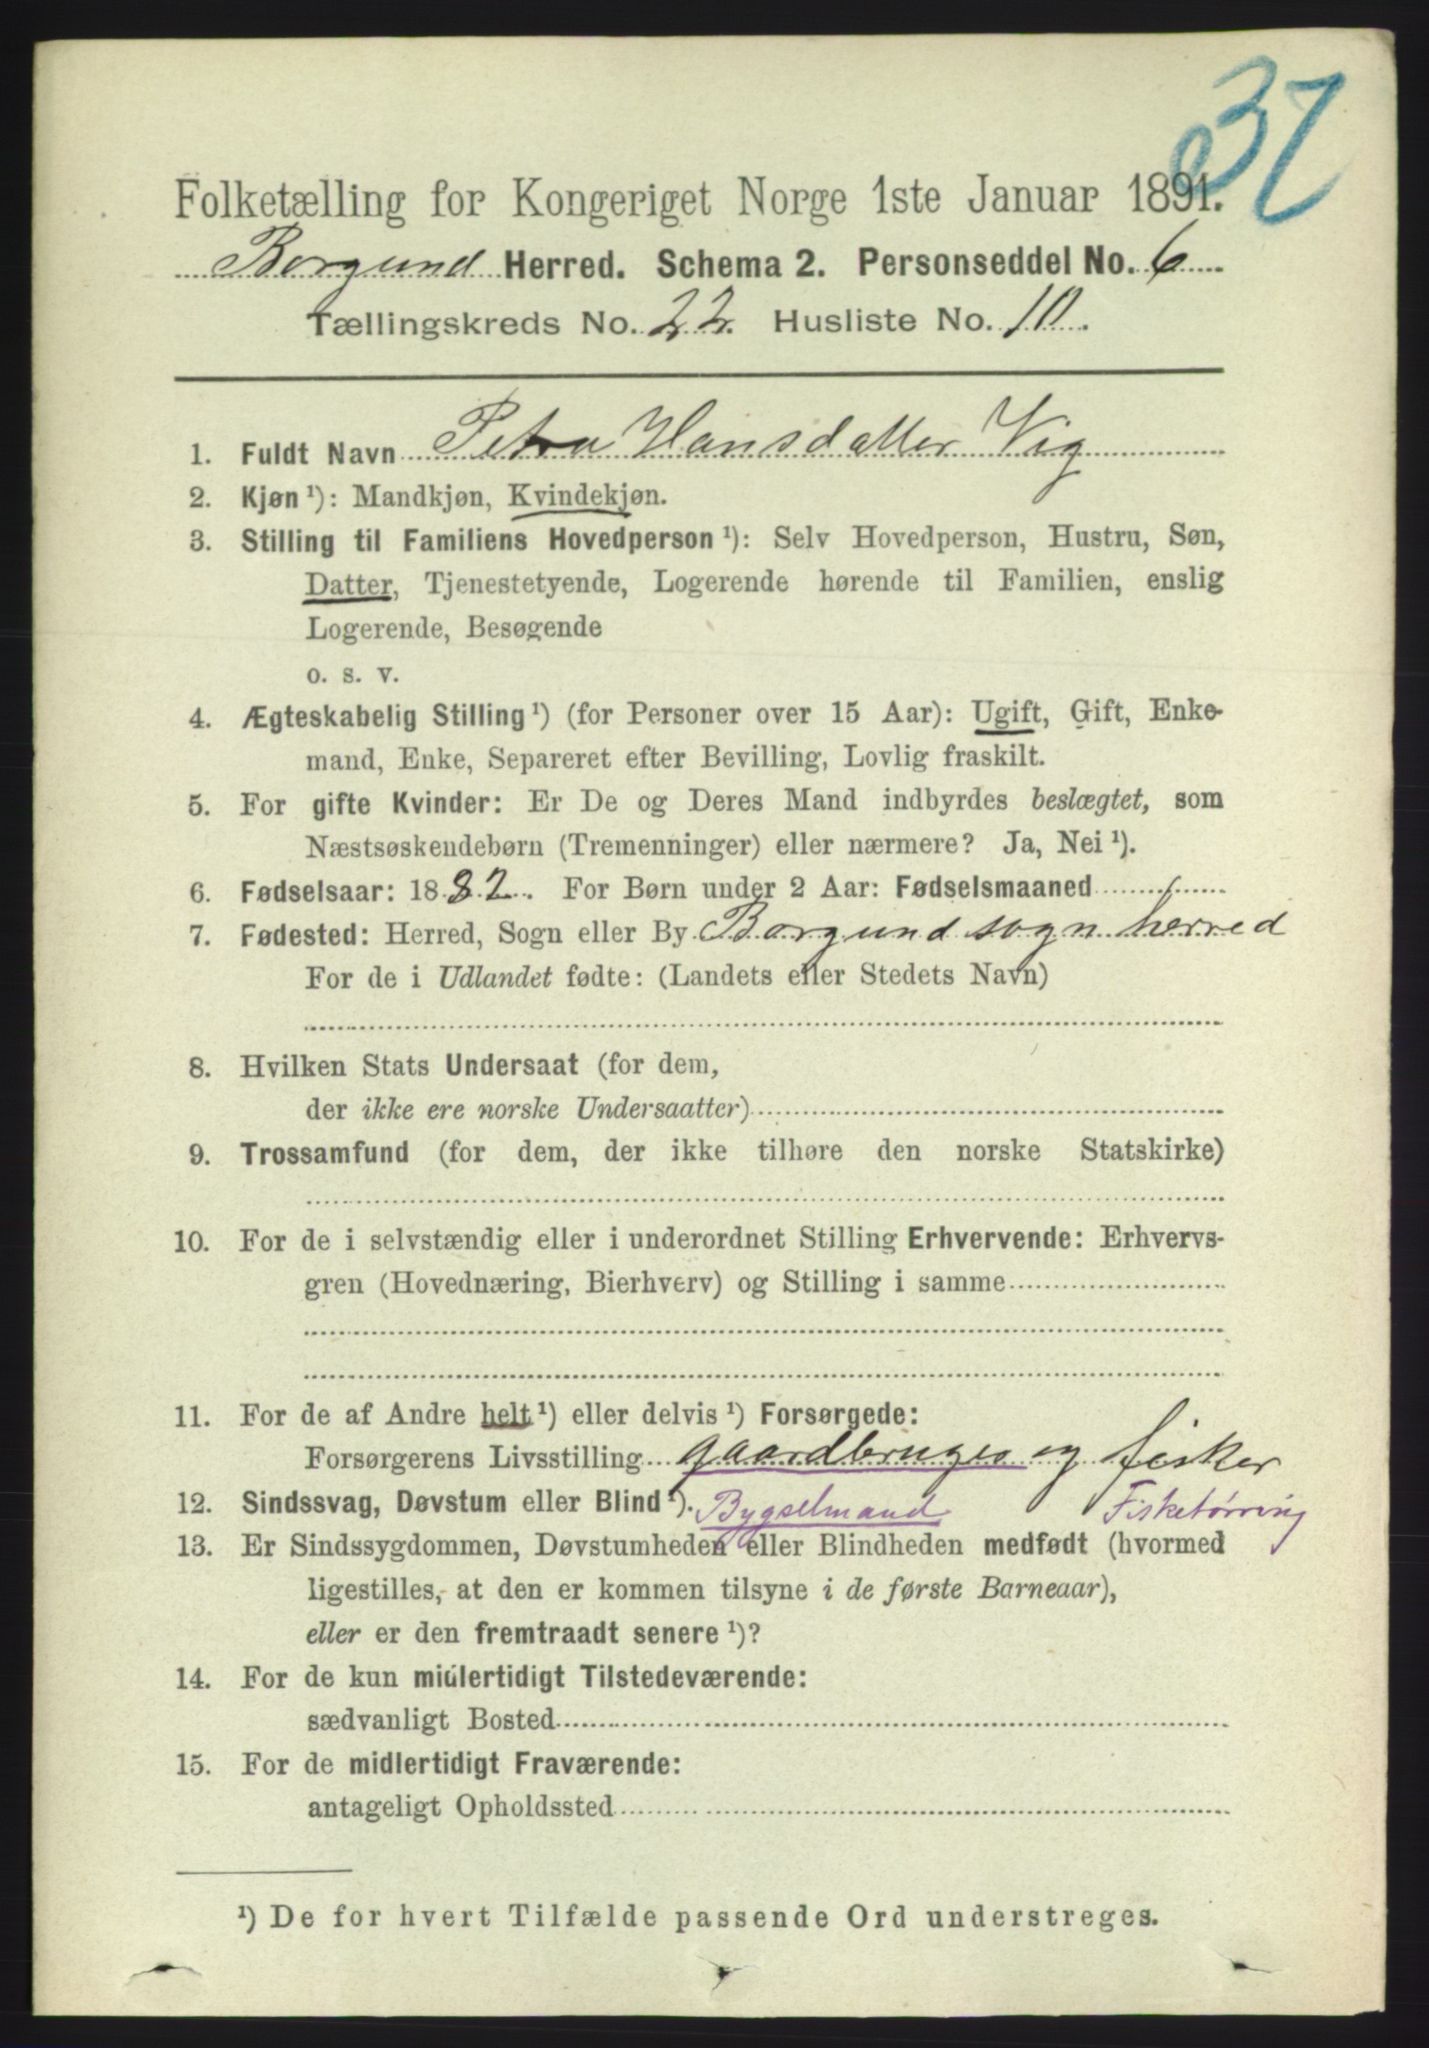 37
Folketælling for Kongeriget Norge 1ste Januar 1891.
Borgund Herred. Schema 2. Personseddel No. 6
Tællingskreds No. 22. Husliste No. 10.
1. Fuldt Navn Petra Hansdatter Vig
2. Kjøn ¹): Mandkjøn, Kvindekjøn.
3. Stilling til Familiens Hovedperson ¹): Selv Hovedperson, Hustru, Søn,
Datter, Tjenestetyende, Logerende hørende til Familien, enslig
Logerende, Besøgende
o. s. v.
4. Ægteskabelig Stilling ¹) (for Personer over 15 Aar): Ugift, Gift, Enke-
mand, Enke, Separeret efter Bevilling, Lovlig fraskilt.
5. For gifte Kvinder: Er De og Deres Mand indbyrdes beslægtet, som
Næstsøskendebørn (Tremenninger) eller nærmere? Ja, Nei ¹).
6. Fødselsaar: 1882. For Børn under 2 Aar: Fødselsmaaned
7. Fødested: Herred, Sogn eller By Borgund sogn herred
For de i Udlandet fødte: (Landets eller Stedets Navn)
8. Hvilken Stats Undersaat (for dem,
der ikke ere norske Undersaatter)
9. Trossamfund (for dem, der ikke tilhøre den norske Statskirke)
10. For de i selvstændig eller i underordnet Stilling Erhvervende: Erhvervs-
gren (Hovednæring, Bierhverv) og Stilling i samme
11. For de af Andre helt ¹) eller delvis ¹) Forsørgede:
Forsørgerens Livsstilling gaardbruger og fisker
12. Sindssvag, Døvstum eller Blind ¹). Bygselmand Fisketørring
13. Er Sindssygdommen, Døvstumheden eller Blindheden medfødt (hvormed
ligestilles, at den er kommen tilsyne i de første Barneaar),
eller er den fremtraadt senere ¹)?
14. For de kun midlertidigt Tilstedeværende:
sædvanligt Bosted
15. For de midlertidigt Fraværende:
antageligt Opholdssted
¹) De for hvert Tilfælde passende Ord understreges.